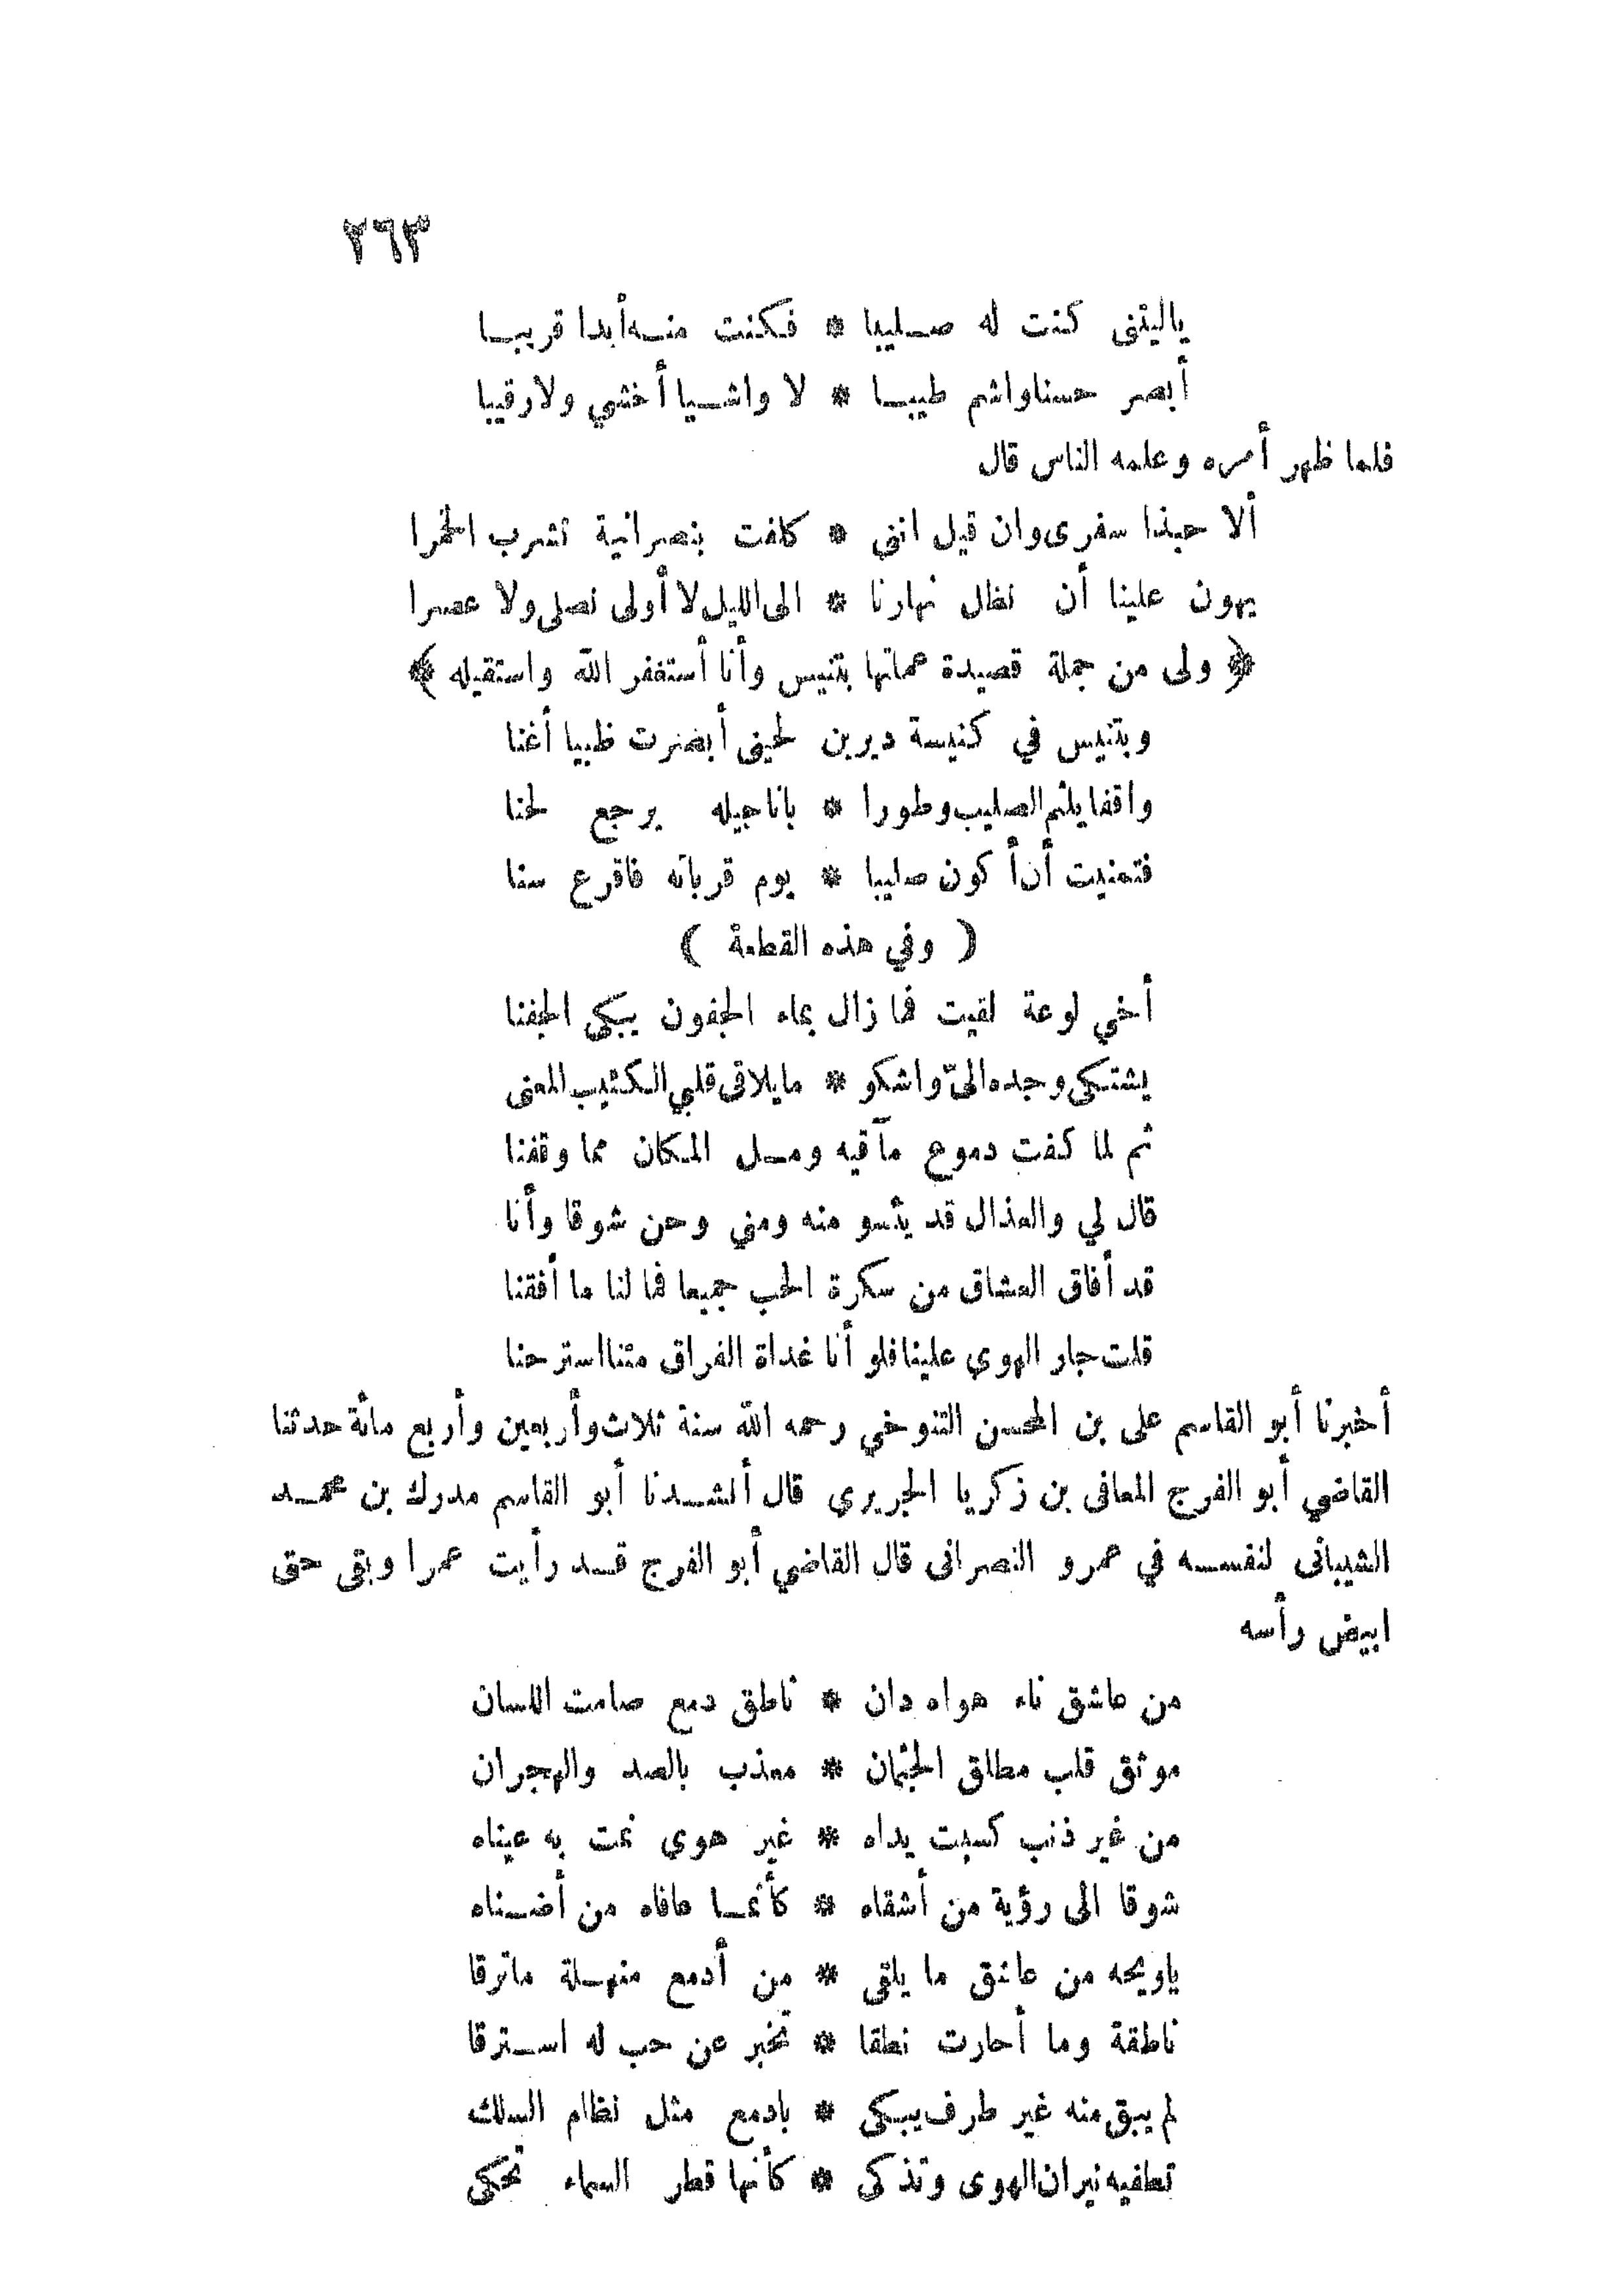 ٢٦٣
ياليتنى كنت له صليبا * فكنت منه أبدا قريبا
أبصر حسنا واشم طيبا * لا واشيا أخشي ولا رقيبا
فلما ظهر أمره وعلمه الناس قال
ألا حبذا سفرى وان قيل اننى * كلفت بنصرانية تشرب الخمرا
يهون علينا أن نظل نهارنا * الى الليل لا أولى نصلى ولا عصرا
﴿ ولى من جملة قصيدة عملتها بتنيس وأنا أستغفر الله واستقيله ﴾
وبتنيس في كنيسة ديرين لحينى أبصرت ظبيا أغنا
واقفا يلثم الصليب وطورا * باناجيله يرجع لحنا
فتمنيت أن أكون صليبا * يوم قربانه فاقرع سنا
( وفي هذه القطعة )
أخي لوعة لقيت فما زال بماء الجفون يبكى الجفنا
يشتكى وجده الىّ واشكو * ما يلاقى قلبي الكئيب المعنى
ثم لما كفت دموع مآقيه ومل المكان مما وقفنا
قال لي والعذال قد يئسو منه ومني وحن شوقا وأنا
قد أفاق العشاق من سكرة الحب جميعا فما لنا ما أفقنا
قلت جار الهوي علينا فلو أنا غداة الفراق متنا استرحنا
أخبرنا أبو القاسم على بن المحسن التنوخي رحمه الله سنة ثلاث وأربعين وأربع مائة حدثنا
القاضي أبو الفرج المعافى بن زكريا الجريري قال أنشدنا أبو القاسم مدرك بن محمد
الشيبانى لنفسه في عمرو النصرانى قال القاضي أبو الفرج قد رأيت عمرا وبقى حتى
ابيض رأسه
من عاشق ناء هواه دان * ناطق دمع صامت اللسان
موثق قلب مطلق الجثمان * معذب بالصد والهجران
من غير ذنب كسبت يداه * غير هوي نمت به عيناه
شوقا الى رؤية من أشقاه * كأنما عافاه من أضناه
ياويحه من عاشق ما يلقى * من أدمع منهلة ماترقا
ناطقة وما أحارت نطقا * تخبر عن حب له استرقا
لم يبق منه غير طرف يبكى * بادمع مثل نظام السلك
تطفيه نيران الهوى وتذكى * كأنها قطر السماء تحكى